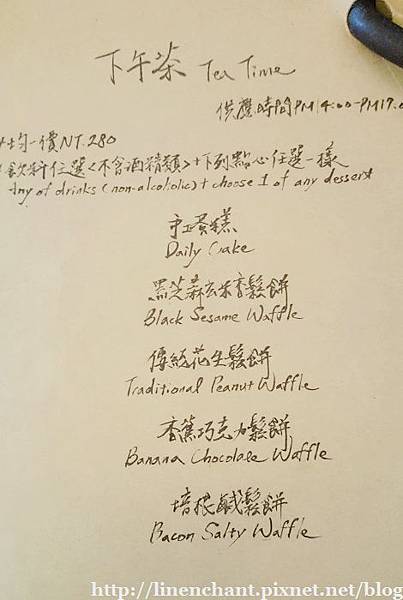 下午茶 Tea Time
供應時間PM14:00-PM19:0
均一價NT.280
飲料任選<不含酒精類>+下列點心任選一樣
Any of drinks (non-alcoholic) + choose 1 of any dessert
手工蛋糕
Daily Cake
黑芝麻玄米香鬆餅
Black Sesame Waffle
傳統花生鬆餅
Traditional Peanut Waffle
香蕉巧克力鬆餅
Banana Chocolate Waffle
培根鹹鬆餅
Bacon Salty Waffle
http://linenchant.pixnet.net/blog